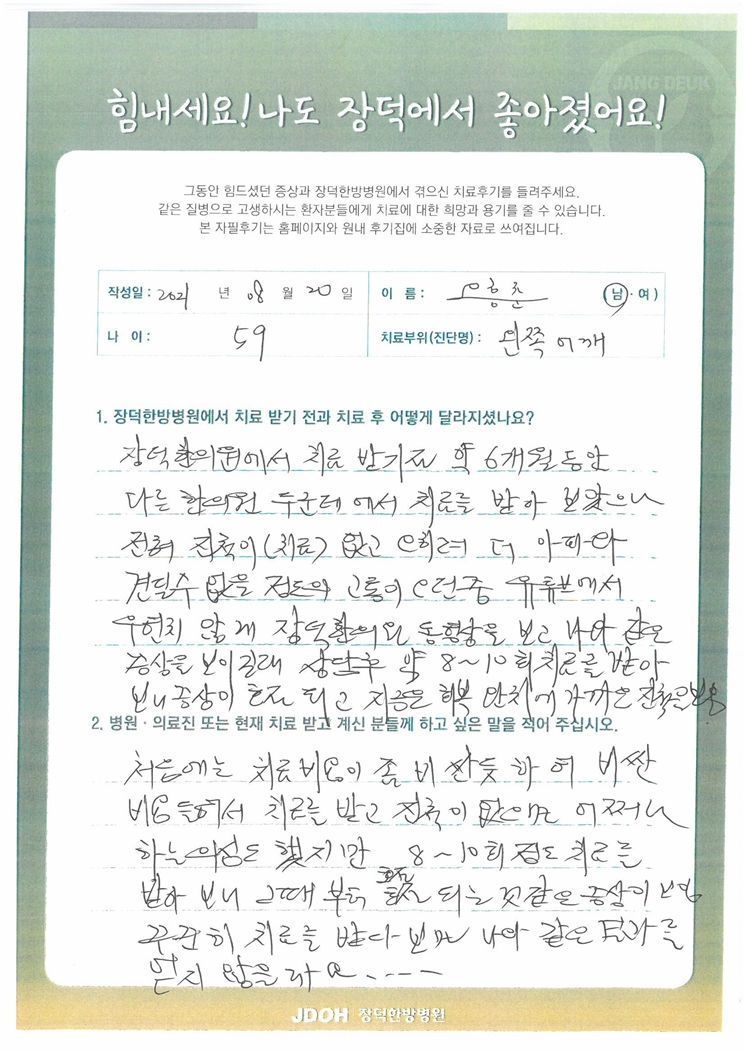 JANG DEUK
힘내세요! 나도 장덕에서 좋아졌어요!
그동안 힘드셨던 증상과 장덕한방병원에서 겪으신 치료후기를 들려주세요.
같은 질병으로 고생하시는 환자분들에게 치료에 대한 희망과 용기를 줄 수 있습니다.
본 자필후기는 홈페이지와 원내 후기집에 소중한 자료로 쓰여집니다.
작성일 : 2021 년 08 월 20 일 이 름 : (남·여)
나 이 : 59 치료부위(진단명) : 왼쪽 어깨
1. 장덕한방병원에서 치료 받기 전과 치료 후 어떻게 달라지셨나요?
장덕한의원에서 치료 받기전 약 6개월동안
다른 한의원 두군데에서 치료를 받아 보았으나
전혀 진척이(치료) 없고 오히려 더 아파와
견딜수 없을 정도의 고통이 오던중 유튜브에서
우연치 않게 장덕한의원 동영상을 보고 나와 같은
증상을 보이길래 상담후 약 8~10회 치료를 받아
보니 증상이 호전 되고 지금은 회복 단치에 가까운 진척을 보임
2. 병원 · 의료진 또는 현재 치료 받고 계신 분들께 하고 싶은 말을 적어 주십시오.
처음에는 치료비용이 좀 비싼듯 하여 비싼
비용 들여서 치료를 받고 진척이 없으면 어쩌나
하는 의심도 했지만 8~10회 정도 치료를
받아 보니 그때 부터 호전 되는 것같은 증상이 보임
꾸준히 치료를 받다 보면 나와 같은 효과를
얻지 않을까요....
JDOH 장덕한방병원